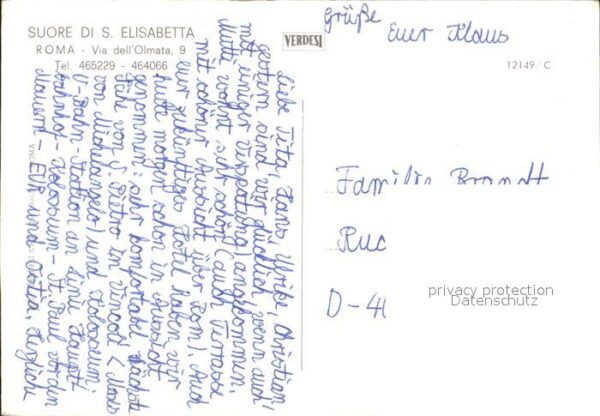 SUORE DI S. ELISABETTA
ROMA - Via dell'Olmata, 9
Tel. 465229 - 464066
VERDESI
12149/C
Liebe Tita, Hans, Ulrike, Christian,
gestern sind wir glücklich, wenn auch
mit einiger Verspätung, angekommen.
Mutti wohnt sehr schön (auch Terrasse
mit schöner Aussicht über Rom). Auch
euer zukünftiges Hotel haben wir
heute morgen schon in Aussicht
genommen: sehr komfortabel, nächste
Nähe von S. Pietro in Vincoli (Moses
von Michelangelo) und Kolosseum;
U-Bahn-Station an Linie Hauptbahnhof
- Kolosseum - St. Paul vor den
Mauern - EUR und Ostia. Herzliche
Grüße
Euer Klaus
Familie Brandt
D-4
privacy protection
Datenschutz